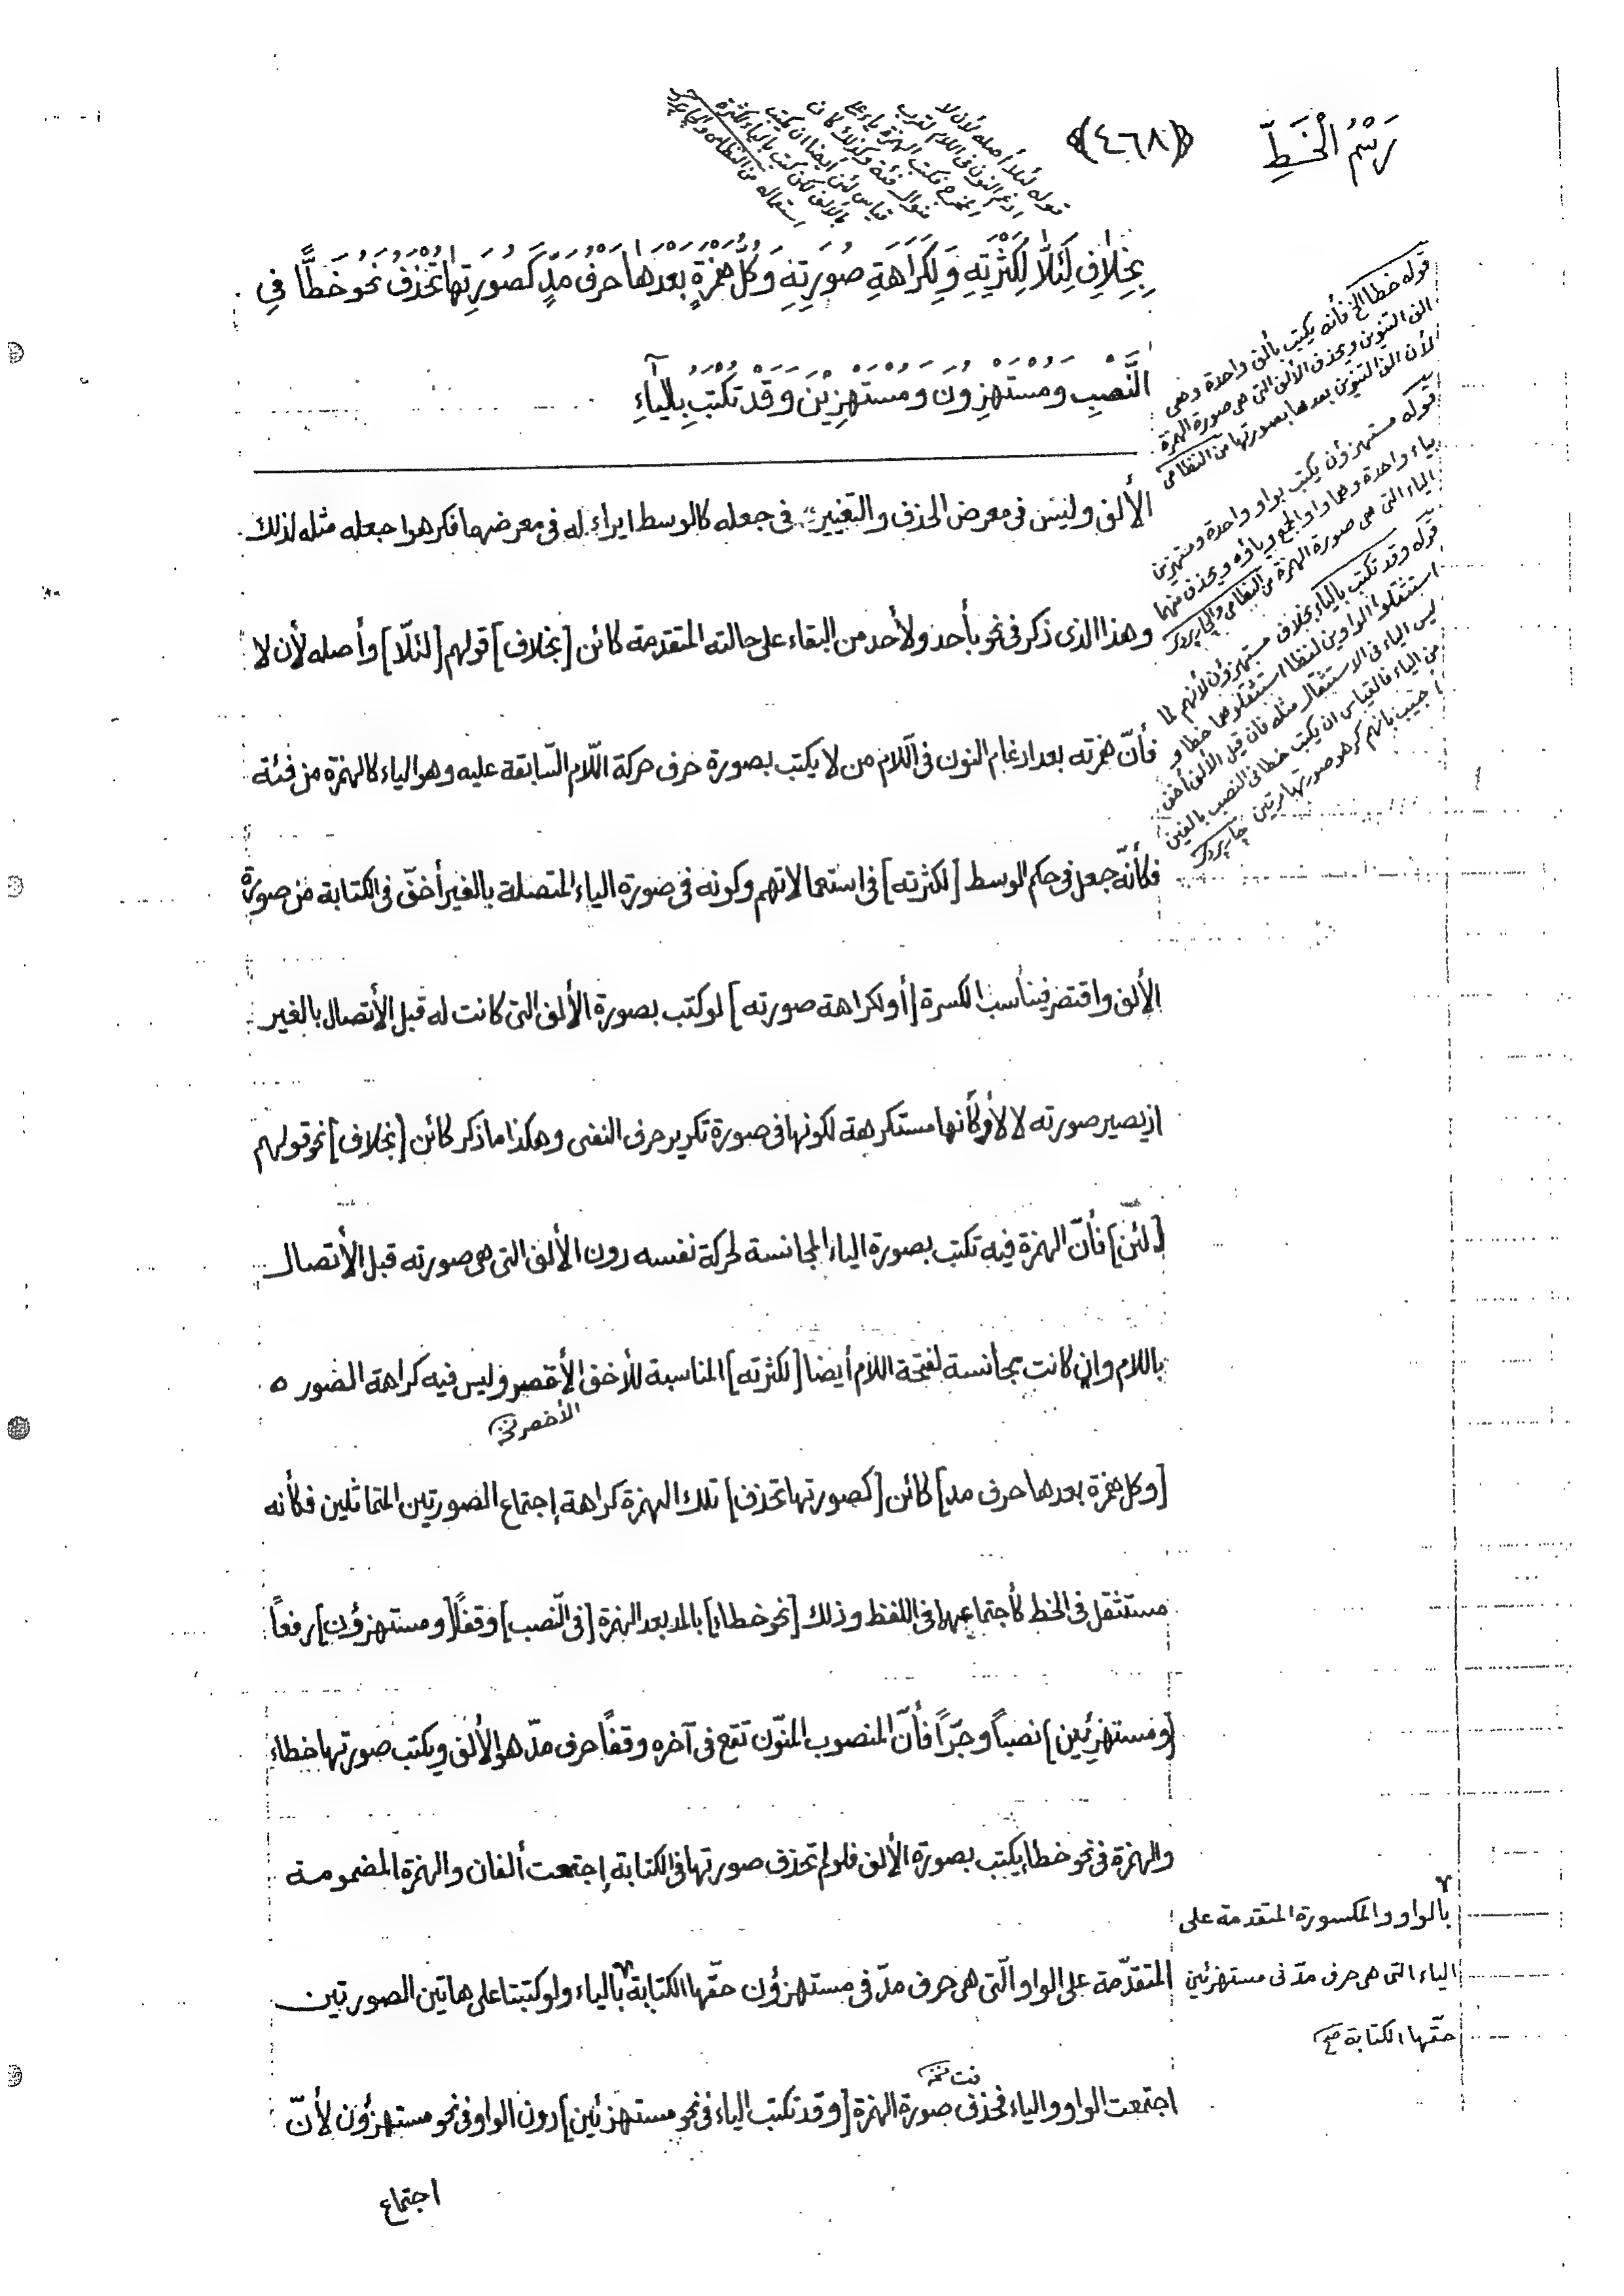 رَسْمُ الْخَطِّ
﴿٤٦٨﴾
قوله لئلا أصله لأن لا
بِخِلَافِ لِئَلَّا لِكَثْرَتِهِ وَلِكَرَاهَةِ صُورَتِهِ وَكُلُّ هَمْزَةٍ بَعْدَهَا حَرْفُ مَدٍّ كَصُورَتِهَا تُحْذَفُ نَحْوُ خَطًّا فِي
النَّصْبِ وَمُسْتَهْزِونَ وَمُسْتَهْزِيْنَ وَقَدْ تَكْتُبُ بِالْيَاءِ
الألف وليس في معرض الحذف والتغيير في جعله كالوسط ايراء له في معرضهما فكرهوا جعله مثله لذلك
وهذا الذى ذكر فى نحو بأحد ولأحد من البقاء على حالته المتقدمة كائن [بخلاف] قولهم [لئلّا] وأصله لأن لا
فأنّ همزته بعد ادغام النون فى اللام من لا يكتب بصورة حرف حركة اللّام السّابقة عليه وهو الياء كالهمزة من فئة
فكأنّه جعل فى حكم الوسط [لكثرته] فى استعمالاتهم وكونه فى صورة الياء المتصلة بالغير أخفّ فى الكتابة من صورة
الألف واقتصر فيناسب الكسرة [أو لكراهة صورته] لو كتب بصورة الألف التى كانت له قبل الأتصال بالغير
اذ يصير صورته لا لأ وكأنها مستكرهة لكونها فى صورة تكرير حرف النفى وهكذا ما ذكر كائن [بخلاف] نحو قولهم
[لئن] فأنّ الهمزة فيه تكتب بصورة الياء المجانسة لحركة نفسه دون الألف التى هى صورته قبل الأتصال
باللام وان كانت مجانسة لفتحة اللام أيضا [لكثرته] المناسبة للأخف الأقصر وليس فيه كراهة الصورة
الأخصر نخ
[وكل همزة بعدها حرف مد] كائن [كصورتها تحذف] تلك الهمزة كراهة إجتماع الصورتين المتماثلين فكأنه
مستثقل فى الخط كأجتماعهما فى اللفظ وذلك [نحو خطاء] بالمد بعد الهمزة [فى النّصب] وقفاً [ومستهزؤن] رفعاً
[ومستهزئين] نصباً وجرّاً فأنّ المنصوب المنوّن تقع فى آخره وقفاً حرف مدّ هو الألف ويكتب صورتها خطاء
والهمزة فى نحو خطاء يكتب بصورة الألف فلو لم تحذف صورتها فى الكتابة إجتمعت ألفان والهمزة المضمومة
المتقدّمة على الواو الّتى هى حرف مدّ فى مستهزؤن حقّها الكتابة بالياء ولو كتبتا على هاتين الصورتين
اجتمعت الواو والياء فحذف صورة الهمزة [وقد تكتب الياء فى نحو مستهزئين] دون الواو فى نحو مستهزؤن لأنّ
فت نخ
اجتماع
قوله خطا الخ فأنه يكتب بألف واحدة وهى
الف التنوين ويحذف الألف التى هى صورة الهمزة
لأن الف التنوين بعدها بصورتها من النظامى
قوله مستهزؤن يكتب بواو واحدة ومستهزين
بياء واحدة وهما واو الجمع وياؤه ويحذف منهما
الياء التى هى صورة الهمزة من النظامى والجاربردى
قوله وقد تكتب بالياء بخلاف مستهزؤن لأنهم لما
استثقلوا الواوين لفظا استثقلوهما خطا و
ليس الياء فى الاستثقال مثله فان قيل الألف أخف
من الياء فالقياس ان يكتب خطا فى النصب بالفين
أجيب بانهم كرهو صورتها مرتين جاربردى
بالواو والمكسورة المتقدمة على
الياء التى هى حرف مدّ فى مستهزئين
حقّها الكتابة صح